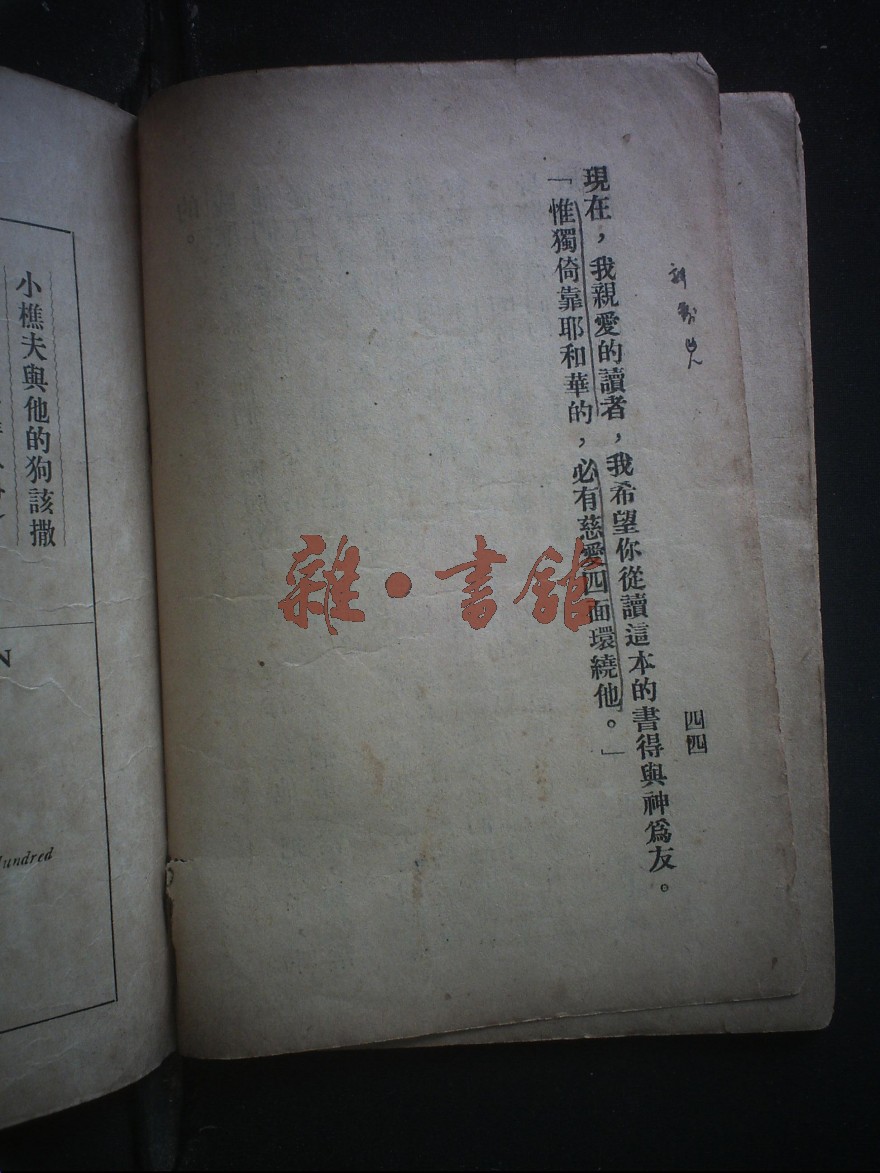 四四
現在，我親愛的讀者，我希望你從讀這本的書得與神爲友。
「惟獨倚靠耶和華的，必有慈愛四面環繞他。」
雜·書館
小樵夫與他的狗該撒
N
Hundred